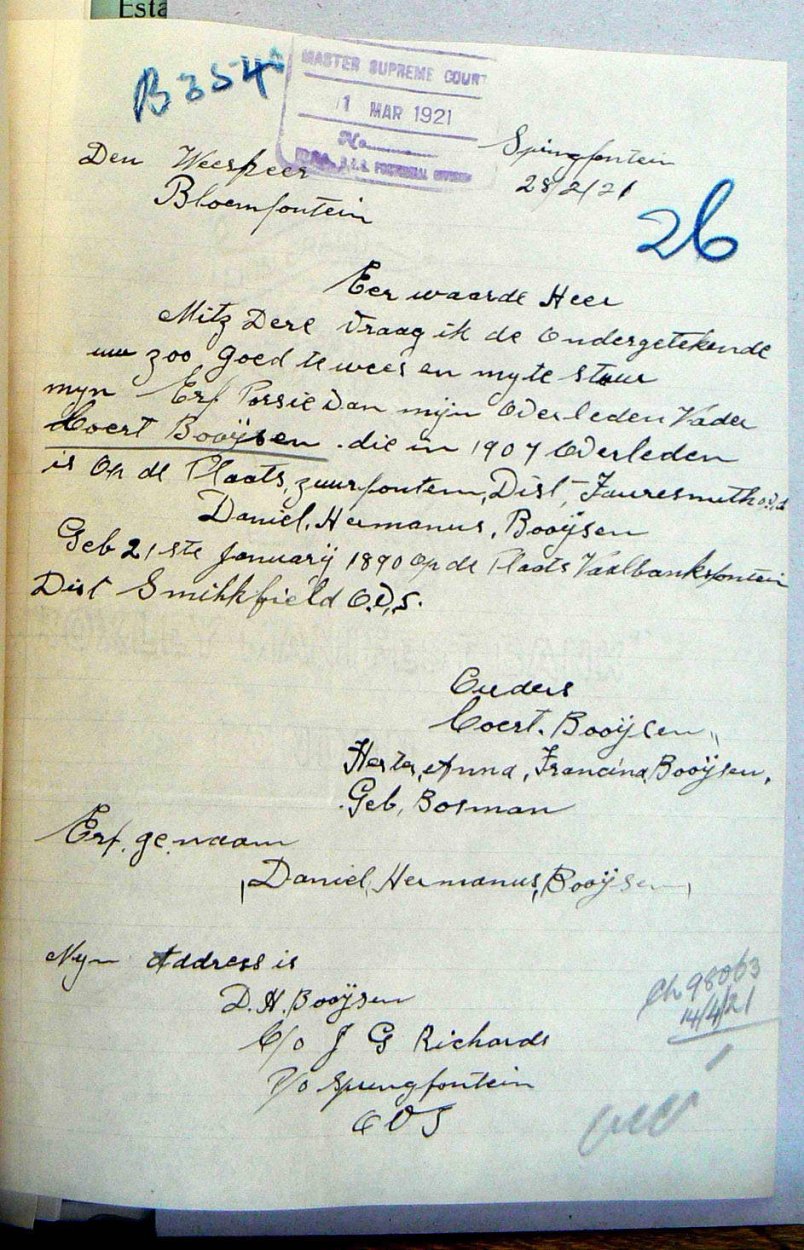 Esta
B354
MASTER SUPREME COURT
1 MAR 1921
No
O.F.S. PROVINCIAL DIVISION
Springfontein
28/2/21
Den Weesheer
Bloemfontein
26
Eer waarde Heer
Mitz Deze Vraag ik de Ondergetekende
uw zoo goed te wees en myte stuur
myn Erf Porsie Van mijn Overleden Vader
Coert Booijsen . die in 1907 Overleden
is Op de Plaats, zuurfontein, Dist, Fauresmith O.V.S
Daniel, Hermanus, Booijsen
Geb 21ste Januarij 1890 op de Plaats Vaalbanksfontein
Dist Smithfield O.V.S.
Ouders
Coert. Booijsen "
Hester, Anna, Francina, Booijsen,
Geb, Bosman
Erf. ge.naam
Daniel, Hermanus, Booijsen,
Myn Address is
D.H. Booijsen
C/o J G Richards
P/o Springfontein
O V S
Ch 98063
14/4/21